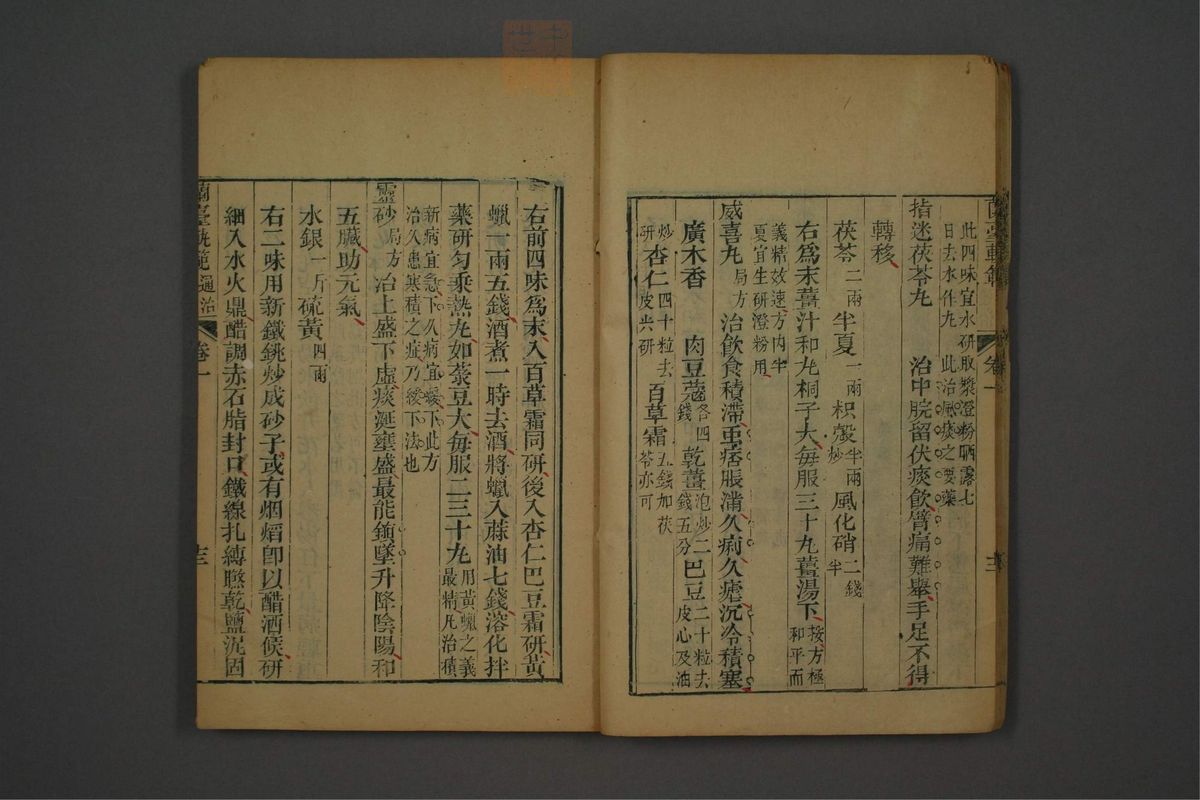 此四味宜水研取漿澄粉晒露七
日去水作丸　此治風痰之要藥
指迷茯苓丸　治中脘留伏痰飲臂痛難舉手足不得
轉移
茯苓二兩　半夏一兩　枳殼半兩炒　風化硝二錢半
右爲末薑汁和丸桐子大每服三十丸薑湯下按方極和平而
義精效速方內半
夏宜生研澄粉用
威喜丸局方　治飲食積滯重痞脹滿久痢久瘧沉冷積塞
廣木香　肉豆蔻各四錢　乾薑泡炒二錢五分　巴豆二十粒去皮心及油
炒研　杏仁四十粒去皮尖研　百草霜五錢加茯苓亦可
卷一
右前四味爲末入百草霜同研後入杏仁巴豆霜研黃
蠟一兩五錢酒煮一時去酒將蠟入蔴油七錢溶化拌
藥研勻乘熱丸如菉豆大每服二三十丸用黃蠟之義最精凡治積
新病宜急下久病宜緩下此方
治久患寒積之症乃緩下法也
靈砂局方　治上盛下虛痰涎壅盛最能鎮墜升降陰陽和
五臟助元氣
水銀一斤　硫黃四兩
右二味用新鐵銚炒成砂子或有烟熖卽以醋洒候研
細入水火鼎醋調赤石脂封口鐵線扎縛曬乾鹽泥固
蘭臺軌範通治　卷一